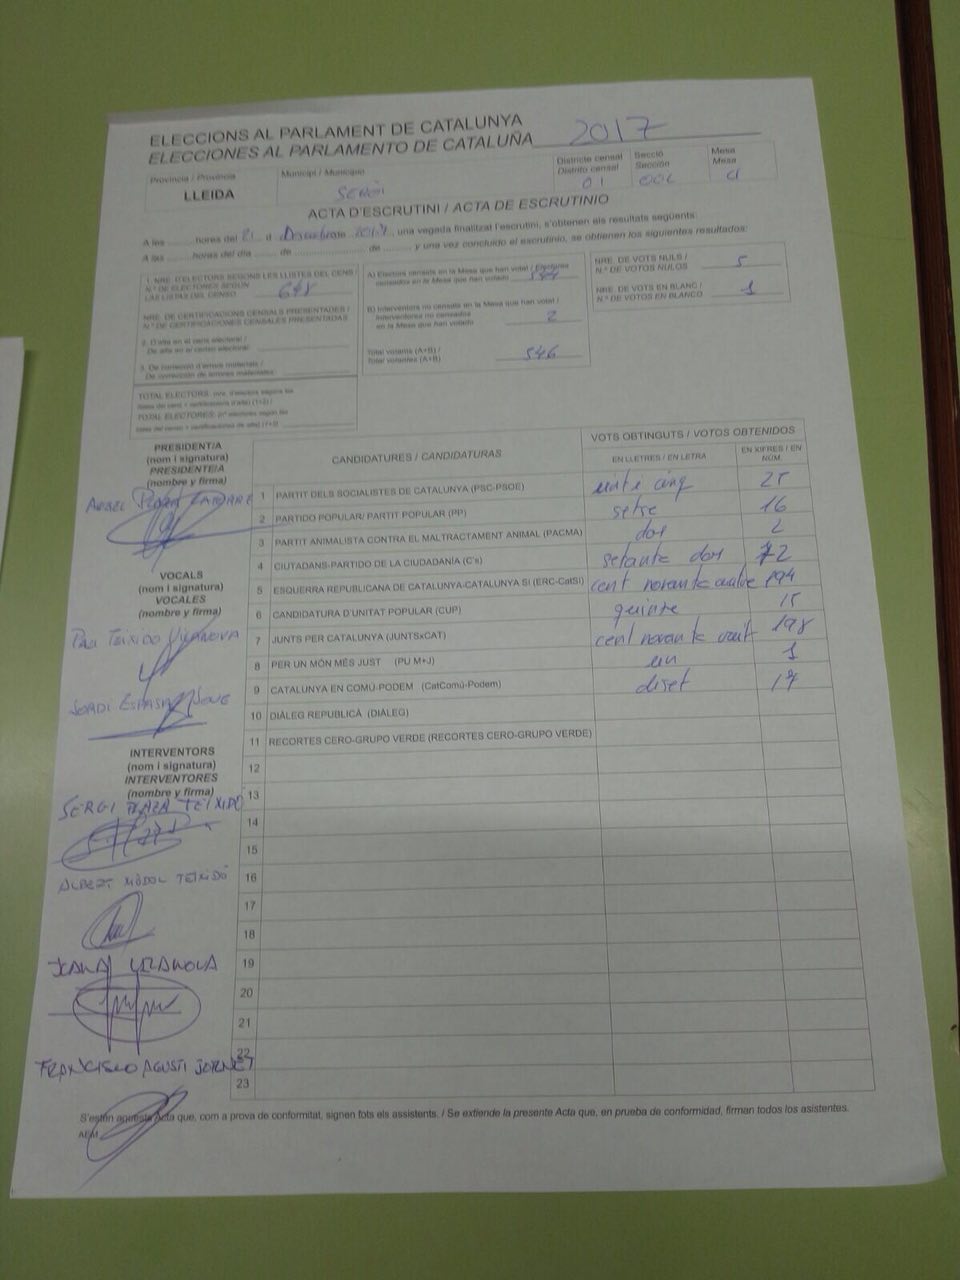 ELECCIONS AL PARLAMENT DE CATALUNYA
ELECCIONES AL PARLAMENTO DE CATALUÑA 2017
Província / Provincia
LLEIDA
Municipi / Municipio
SERÒS
Districte censal
Distrito censal
01
Secció
Sección
Mesa
Mesa
ACTA D'ESCRUTINI / ACTA DE ESCRUTINIO
A les ........ hores del 21 d Desembre de 2017, una vegada finalitzat l'escrutini, s'obtenen els resultats següents:
A las ........ horas del día ........ de ........ de ........ y una vez concluido el escrutinio, se obtienen los siguientes resultados:
1. NRE. D'ELECTORS SEGONS LES LLISTES DEL CENS /
N.º DE ELECTORES SEGÚN
LAS LISTAS DEL CENSO 648
NRE. DE CERTIFICACIONS CENSALS PRESENTADES /
N.º DE CERTIFICACIONES CENSALES PRESENTADAS
2. D'alta en el cens electoral /
De alta en el censo electoral
3. De correcció d'errors materials /
De corrección de errores materiales
TOTAL ELECTORS
TOTAL ELECTORES
A) Electors censats en la Mesa que han votat / Electores
censados en la Mesa que han votado 544
B) Interventors no censats en la Mesa que han votat /
Interventores no censados
en la Mesa que han votado 2
Total votants (A+B) /
Total votantes (A+B) 546
NRE. DE VOTS NULS /
N.º DE VOTOS NULOS 5
NRE. DE VOTS EN BLANC /
N.º DE VOTOS EN BLANCO 1
PRESIDENT/A
(nom i signatura)
PRESIDENTE/A
(nombre y firma)
VOCALS
(nom i signatura)
VOCALES
(nombre y firma)
PAU TEIXIDO VILANOVA
JORDI
INTERVENTORS
(nom i signatura)
INTERVENTORES
(nombre y firma)
SERGI PLAZA TEIXIDO
ALBERT MÒDOL TEIXIDÓ
JOANA VILANOVA
FRANCISCO AGUSTI JORNET
CANDIDATURES / CANDIDATURAS
VOTS OBTINGUTS / VOTOS OBTENIDOS
EN LLETRES / EN LETRA
EN XIFRES / EN NÚM.
1 PARTIT DELS SOCIALISTES DE CATALUNYA (PSC-PSOE) vinte cinq 25
2 PARTIDO POPULAR/ PARTIT POPULAR (PP) setse 16
3 PARTIT ANIMALISTA CONTRA EL MALTRACTAMENT ANIMAL (PACMA) dos 2
4 CIUTADANS-PARTIDO DE LA CIUDADANÍA (C's) setante dos 72
5 ESQUERRA REPUBLICANA DE CATALUNYA-CATALUNYA SÍ (ERC-CatSí) cent novante cuatre 194
6 CANDIDATURA D'UNITAT POPULAR (CUP) quinze 15
7 JUNTS PER CATALUNYA (JUNTSxCAT) cent novante vuit 198
8 PER UN MÓN MÉS JUST (PU M+J) un 1
9 CATALUNYA EN COMÚ-PODEM (CatComú-Podem) diset 17
10 DIÀLEG REPUBLICÀ (DIÀLEG)
11 RECORTES CERO-GRUPO VERDE (RECORTES CERO-GRUPO VERDE)
12
13
14
15
16
17
18
19
20
21
22
23
S'estén aquesta Acta que, com a prova de conformitat, signen tots els assistents. / Se extiende la presente Acta que, en prueba de conformidad, firman todos los asistentes.